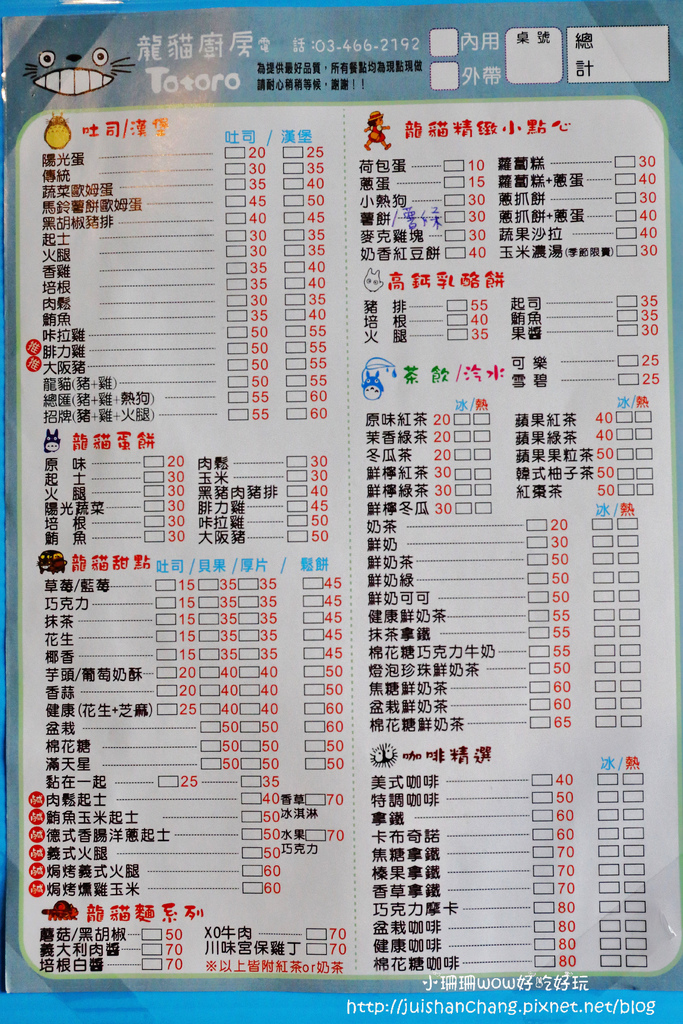 龍貓廚房 電 話:03-466-2192
Totoro
為提供最好品質，所有餐點均為現點現做
請耐心稍稍等候，謝謝！！
內用
外帶
桌號
總計
吐司/漢堡 吐司 / 漢堡
陽光蛋 20 25
傳統 30 35
蔬菜歐姆蛋 35 40
馬鈴薯餅歐姆蛋 45 50
黑胡椒豬排 40 45
起士 30 35
火腿 30 35
香雞 35 40
培根 35 40
肉鬆 30 35
鮪魚 35 40
咔拉雞 50 55
推 腓力雞 50 55
推 大阪豬 50 55
龍貓(豬+雞) 50 55
總匯(豬+雞+熱狗) 55 60
招牌(豬+雞+火腿) 55 60
龍貓蛋餅
原味 20 肉鬆 30
起士 30 玉米 30
火腿 30 黑豬肉豬排 40
陽光蔬菜 30 腓力雞 45
培根 30 咔拉雞 50
鮪魚 30 大阪豬 50
龍貓甜點 吐司 / 貝果 / 厚片 / 鬆餅
草莓/藍莓 15 35 35 45
巧克力 15 35 35 45
抹茶 15 35 35 45
花生 15 35 35 45
椰香 15 35 35 45
芋頭/葡萄奶酥 20 40 40 50
香蒜 20 40 40 50
健康(花生+芝麻) 25 40 40 60
盆栽 50 50 60
棉花糖 50 50 50
滿天星 50 50 50
黏在一起 25 35
鹹 肉鬆起士 40 香草冰淇淋 70
鹹 鮪魚玉米起士 50
鹹 德式香腸洋蔥起士 50 水果巧克力 70
鹹 義式火腿 50
鹹 焗烤義式火腿 60
鹹 焗烤燻雞玉米 60
龍貓麵系列
蘑菇/黑胡椒 50 XO牛肉 70
義大利肉醬 70 川味宮保雞丁 70
培根白醬 70 ※以上皆附紅茶or奶茶
龍貓精緻小點心
荷包蛋 10 蘿蔔糕 30
蔥蛋 15 蘿蔔糕+蔥蛋 40
小熱狗 30 蔥抓餅 30
薯餅/薯條 30 蔥抓餅+蔥蛋 40
麥克雞塊 30 蔬果沙拉 40
奶香紅豆餅 40 玉米濃湯(季節限賣) 30
高鈣乳酪餅
豬排 55 起司 35
培根 40 鮪魚 35
火腿 35 果醬 30
茶飲/汽水 可樂 25
雪碧 25
冰/熱 冰/熱
原味紅茶 20 蘋果紅茶 40
茉香綠茶 20 蘋果綠茶 40
冬瓜茶 20 蘋果果粒茶 50
鮮檸紅茶 30 韓式柚子茶 50
鮮檸綠茶 30 紅棗茶 50
鮮檸冬瓜 30 冰/熱
奶茶 20
鮮奶 30
鮮奶茶 50
鮮奶綠 50
鮮奶可可 50
健康鮮奶茶 55
抹茶拿鐵 55
棉花糖巧克力牛奶 55
燈泡珍珠鮮奶茶 50
焦糖鮮奶茶 60
盆栽鮮奶茶 60
棉花糖鮮奶茶 65
咖啡精選 冰/熱
美式咖啡 40
特調咖啡 50
拿鐵 60
卡布奇諾 60
焦糖拿鐵 70
榛果拿鐵 70
香草拿鐵 70
巧克力摩卡 80
盆栽咖啡 80
健康咖啡 80
棉花糖咖啡 80
小珊珊wow好吃好玩
http://juishanchang.pixnet.net/blog